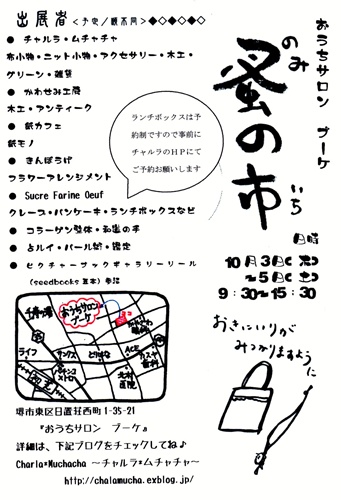 おうちサロン ブーケ
のみ
蚤の市
いち
日時
10月3日(木)
~5日(土)
9:30~15:30
おきにいりが
みつかりますように
出展者<予定/順不同>◆◇◆◇◆◇
● チャルラ・ムチャチャ
布小物・ニット小物・アクセサリー・木工・
グリーン・雑貨
● かわせみ工房
木工・アンティーク
● 紙カフェ
紙モノ
● きんぽうげ
フラワーアレンジメント
● Sucre Farine Oeuf
クレープ・パンケーキ・ランチボックスなど
● コラーゲン整体・和楽の手
● 占ルイ・パール占・鑑定
● ピクチャーブックギャラリーリール
(seedbooks 豆本)参加
ランチボックスは予
約制ですので事前に
チャルラのHPにて
ご予約お願いします
おうちサロン
ブーケ
ライフ
サンクス
とりはな
ACE
カスヤ
歯科
北村
医院
堺市東区日置荘西町1-35-21
『おうちサロン ブーケ』
詳細は、下記ブログをチェックしてね♪
Charla*Muchacha ~チャルラ*ムチャチャ~
http://chalamucha.exblog.jp/